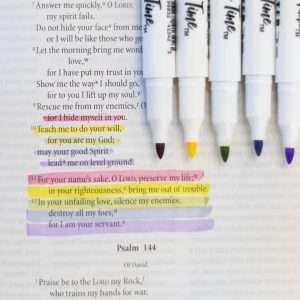 Answer me quickly, O LORD;
my spirit fails.
Do not hide your face from me
or I will be like those who go
Let the morning bring me word
love,
for I have put my trust in you
Show me the way I should go,
for to you I lift up my soul.
Rescue me from my enemies, O
for I hide myself in you.
10 Teach me to do your will,
for you are my God;
may your good Spirit
lead me on level ground.
11 For your name's sake, O LORD, preserve my life;
in your righteousness, bring me out of trouble.
12 In your unfailing love, silence my enemies;
destroy all my foes,
for I am your servant.
Psalm 144
Of David.
1 Praise be to the LORD my Rock,
who trains my hands for war,
Time
Time
Time
Time